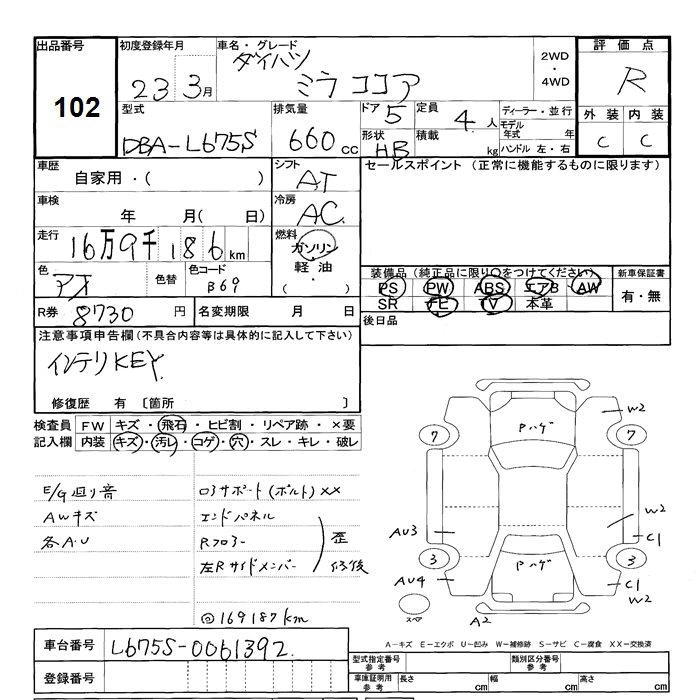 出品番号
102
初度登録年月
23 3月
車名・グレード
ダイハツ
ミラ ココア
2WD
・
4WD
評価点
R
外装 内装
C C
型式
DBA-L675S
排気量
660 cc
ドア 5
定員 4 人
形状 HB
積載 kg
ディーラー・並行
モデル年式 年
ハンドル 左・右
車歴
自家用・( )
シフト
AT
セールスポイント (正常に機能するものに限ります)
車検
年 月( 日)
冷房
AC
走行
16万9千186km
燃料
ガソリン
・
軽油
・
( )
色
アオ
色替
色コード
B69
装備品(純正品に限り○をつけてください)
PS PW ABS エアB AW
SR TE V 本革
新車保証書
有・無
後日品
R券 8730 円
名変期限 月 日
注意事項申告欄(不具合内容等は具体的に記入して下さい)
インテリKEY.
修復歴 有 〔箇所 〕
検査員記入欄
FW キズ・飛石・ヒビ割・リペア跡・×要
内装 キズ・汚レ・コゲ・穴・スレ・キレ・破レ
E/G廻り音
AWキズ
各A・U
コアサポート(ボルト)XX
エンドパネル
Rフロアー
左Rサイドメンバー
歪
修後
@169187km
Pハゲ
W2
7
7
AU3
W2
C1
3
3
Pハゲ
AU4
C1
W2
スペア
A2
車台番号 L675S-0061392
登録番号
A-キズ E-エクボ U-凹み W-補修跡 S-サビ C-腐食 XX-交換済
型式指定番号参考
類別区分番号参考
車庫証明用参考
長さ cm
幅 cm
高さ cm